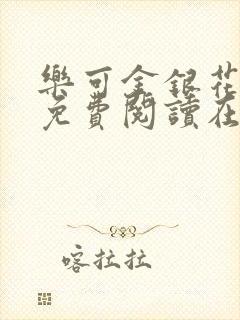 樂可金銀花
免費閱讀在
喀拉拉